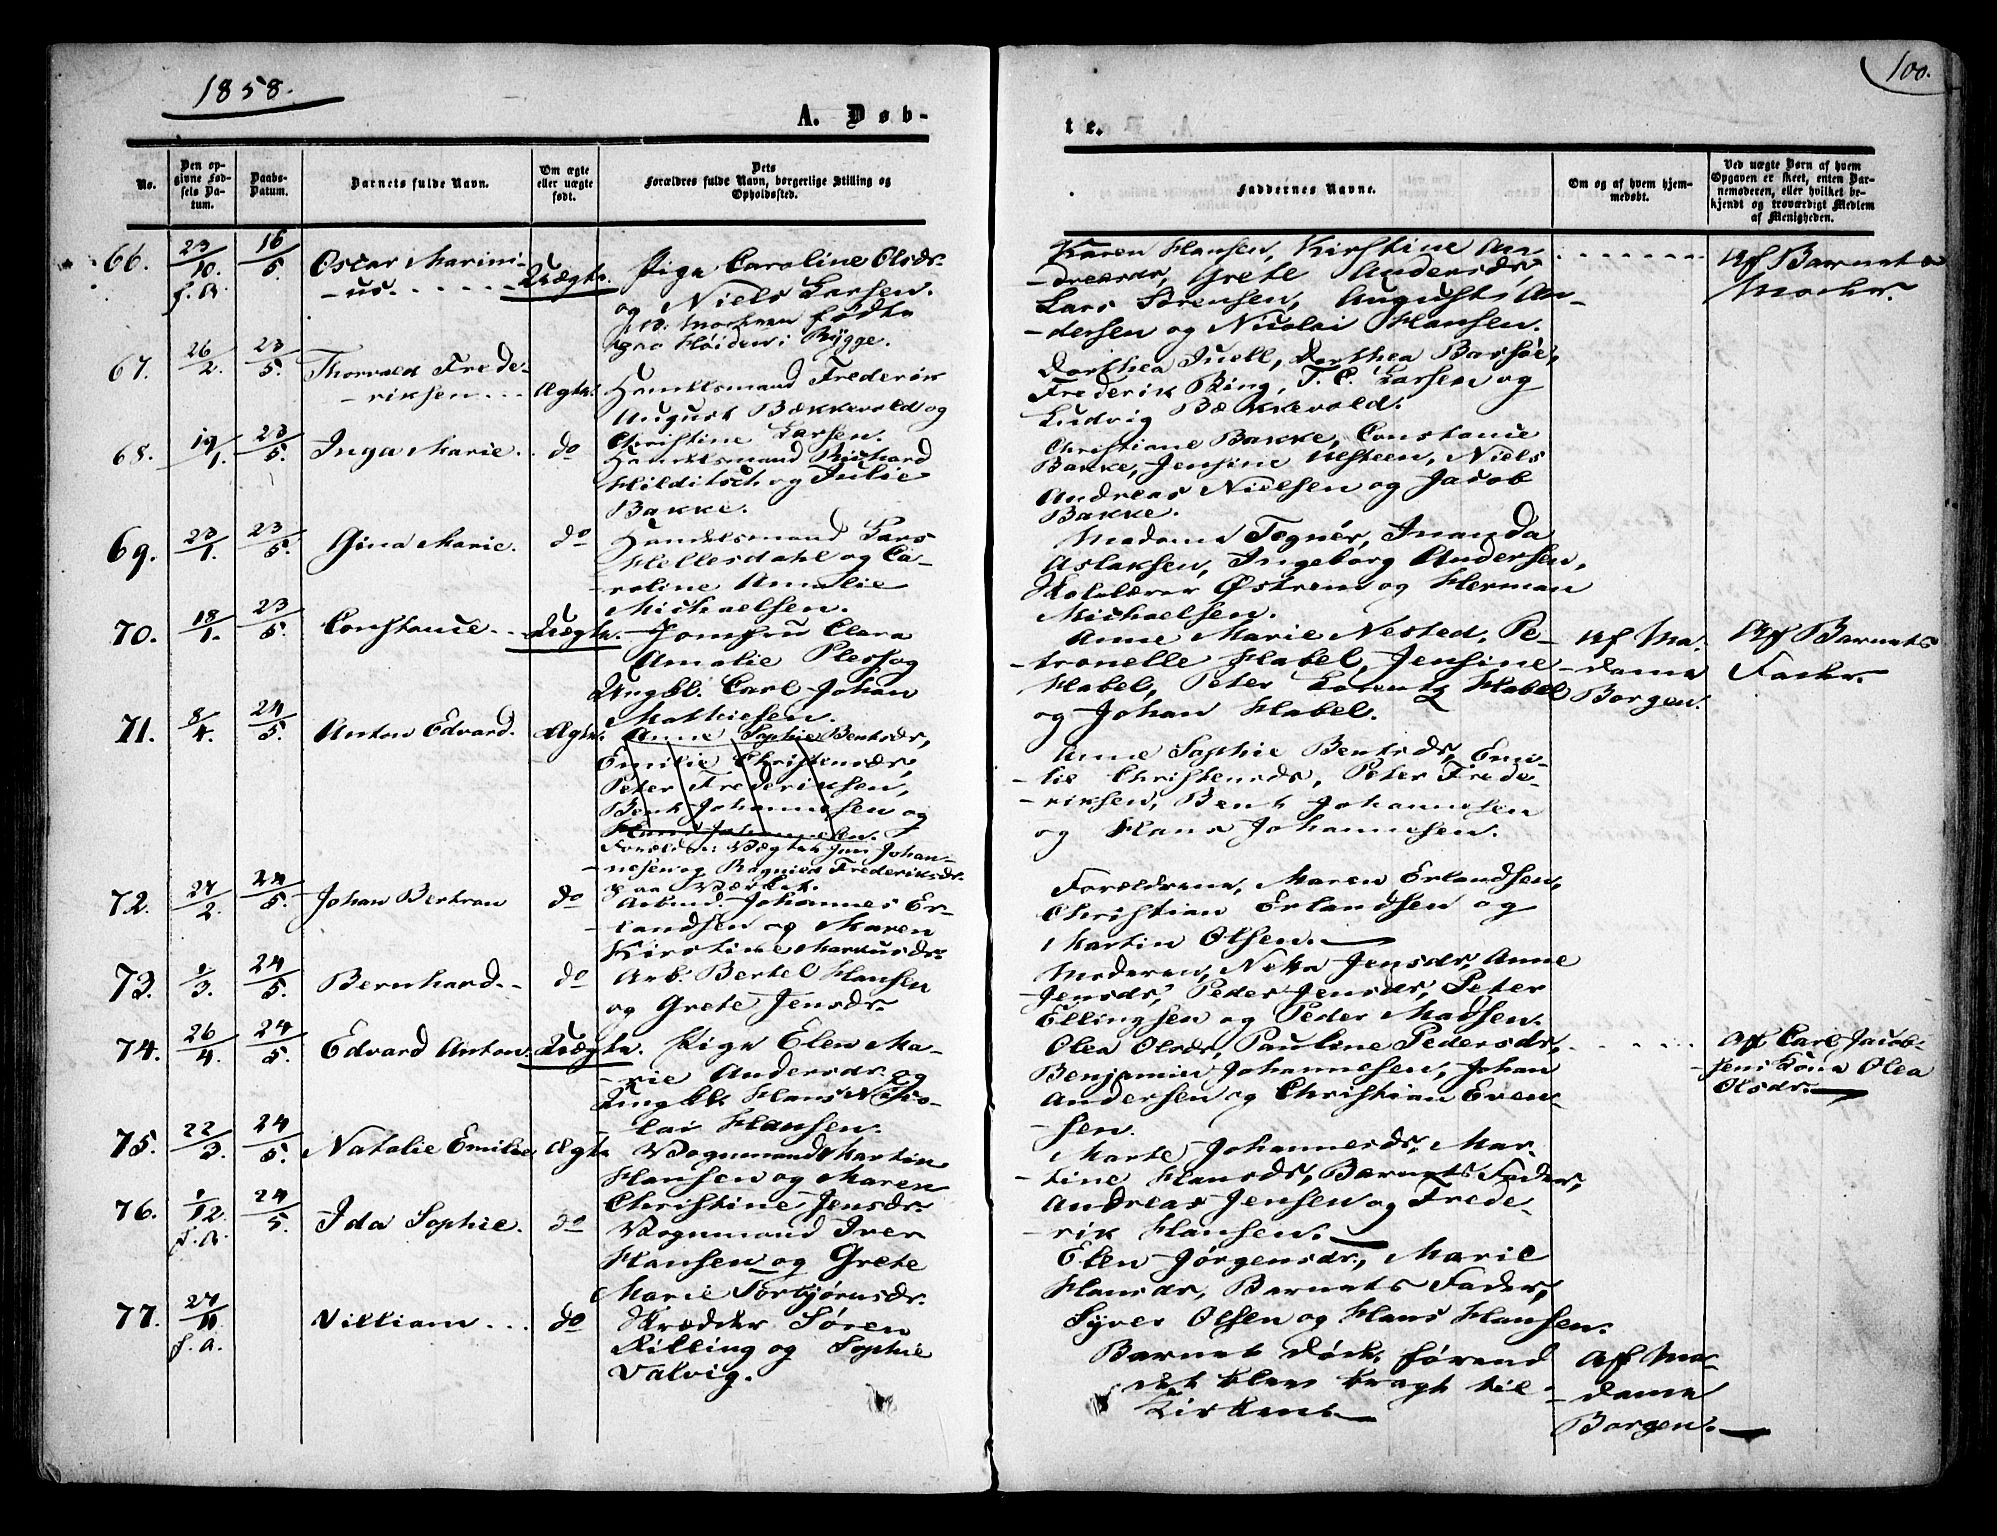 1858.
100.
A. Døb-
te.
No.
Den op-
givne Fød-
sels Da-
tum.
Daabs-
Datum.
Barnets fulde Navn.
Om ægte
eller uægte
født.
Dets
Forældres fulde Navn, borgerlige Stilling og
Opholdssted.
Faddernes Navne.
Om og af hvem hjem-
medøbt.
Ved uægte Børn af hvem
Opgaven er skeet, enten Bar-
nemoderen, eller hvilket be-
kjendt og troværdigt Medlem
af Menigheden.
66. 23/10. f. A. 16/5 Oscar Marini-
-us. Uægte.
Pige Caroline Olsdr.
og Niels Larsen.
fødte
Høiden i Rygge.
Karen Hansen, Kirstine An-
Grete Andersdr,
Lars Sørensen, August An-
-dersen og Nicolai Hansen.
Af Barnets
Moder.
67. 26/2. 23/5. Thorvald Frede-
-riksen. Ægte.
Handelsmand Frederik
August Bækkevold og
Christine Larsen.
Dorthea Juell, Dorthea Barsøe,
Frederik Ring, T. C. Larsen og
Ludvig Bækkevold.
68. 19/1. 23/5. Inga Marie. do
Handelsmand Richard
Hilditsch og Julie
Bakke.
Christiane Bakke, Constance
Bakke, Jensine Ulsteen, Niels
Andreas Nielsen og Jacob
Bakke.
69. 23/1. 23/5. Gina Marie. do
Handelsmand Lars
Hellesdahl og Ca-
-roline Amalie
Michaelsen.
Madame Tegnér, Inanda
Aslaksen, Ingeborg Andersen,
Skolelærer Østrem og Herman
Michaelsen.
70. 18/1. 23/5. Constance. Uægte.
Jomfru Clara
Amalie Pless og
Ungkl. Carl Johan
Mathiesen.
Anne Marie Nested, Pe-
-tronelle Habel, Jensine
Habel, Peter Lorentz Habel
og Johan Habel.
Af Ma-
-dame
Borgen.
Af Barnets
Fader.
71. 8/4. 24/5. Anton Edvard. Ægte.
Anne Sophie Bentsdr,
Emilie Christensdr,
Peter Frederiksen,
Bent Johannesen og
Hans Johannesen.
Forældre: Vægter Jens Johan-
-nesen og Frederiksdr.
paa Værket.
Anne Sophie Bentsdr, Emi-
-lie Christensdr, Peter Frede-
-riksen, Bent Johannesen
og Hans Johannesen.
72. 27/2. 24/5. Johan Bertran do
Arbmd. Johannes Er-
-landsen og Maren
Kirstine Markusdr.
Forældrene, Maren Erlandsen,
Christian Erlandsen og
Martin Olsen.
73. 1/3. 24/5. Bernhard. do
Arb. Bertel Hansen
og Grete Jensdr.
Moderen, Neka Jensdr, Anne
Jensdr, Peder Jensdr, Peter
Ellingsen og Peder Madsen.
74. 26/4. 24/5. Edvard Anton. Uægte.
Pige Elen Ma-
-rie Andersdr. og
Ungkl. Hans Nico-
-lai Hansen.
Olea Olsdr, Pauline Pedersdr,
Benjamin Johannesen, Johan
Andersen og Christian Even-
-sen.
Af Carl Jacob-
-sens Kone Olea
Olsdr.
75. 22/3. 24/5. Natalie Emilie Ægte
Vognmand Martin
Hansen og Maren
Christine Jensdr.
Marte Johannesdr, Mar-
-tine Hansdr, Barnets Fader,
Andreas Jensen og Frede-
-rik Hansen.
76. 1/12. f. A. 24/5. Ida Sophie. do
Vognmand Iver
Hansen og Grete
Marie Torbjørnsdr.
Elen Jørgensdr., Marie
Hansdr, Barnets Fader,
Syver Olsen og Hans Hansen.
77. 27/11. f. A. Villiam. do
Skrædder Søren
Killing og Sophie
Valvig.
Barnet døde, førend
det blev bragt til
Kirken.
Af Ma-
-dame
Borgen.